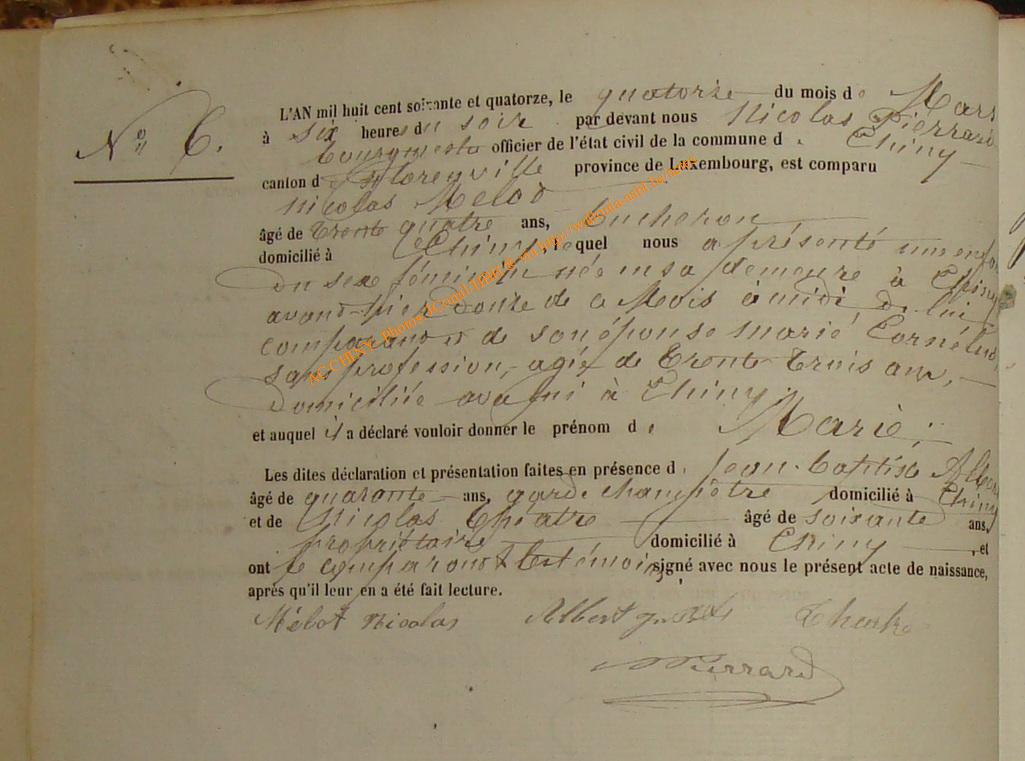 N° 6.
L'AN mil huit cent soixante et quatorze, le quatorze du mois de Mars
à six heures du soir par devant nous Nicolas Pierrard
bourgmestre officier de l'état civil de la commune d. Chiny
canton d. Florenville province de Luxembourg, est comparu
Nicolas Melot
âgé de trente quatre ans, bucheron
domicilié à Chiny, lequel nous a présenté un enfan
du sexe féminin née en sa demeure à Chiny
avant-hier douze de ce Mois à midi, de lui
comparant et de son épouse marie Cornélus
sans profession, agée de trente trois ans,
domiciliée avec lui à Chiny;
et auquel il a déclaré vouloir donner le prénom d. Marie;
Les dites déclaration et présentation faites en présence d. Jean-baptiste Albert
âgé de quarante ans, garde champêtre domicilié à Chiny
et de Nicolas âgé de soixante ans,
propriétaire domicilié à Chiny, et
ont le comparant & les témoins signé avec nous le présent acte de naissance,
après qu'il leur en a été fait lecture.
Mélot Nicolas Albert
Pierrard